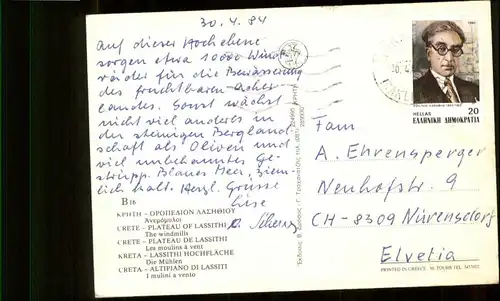 30.4.84
Auf dieser Hochebene
sorgen etwa 1000 Wind-
räder für die Bewässerung
des fruchtbaren Acker
landes. Sonst wächst
nicht viel anderes in
der steinigen Bergland
schaft als Oliven und
viel unbekanntes Ge-
strüpp. Blaues Meer, ziem-
lich kalt. Herzl. Grüsse
B 16
ΚΡΗΤΗ - ΟΡΟΠΕΔΙΟΝ ΛΑΣΗΘΙΟΥ
Ανεμόμυλοι
CRETE - PLATEAU OF LASSITHI
The windmills
CRETE - PLATEAU DE LASSITHI
Les moulins à vent
KRETA - LASSITHI HOCHFLÄCHE
Die Mühlen
CRETA - ALTIPIANO DI LASSITI
I mulini a vento
HELLAS 20
ΕΛΛΗΝΙΚΗ ΔΗΜΟΚΡΑΤΙΑ
Fam
A. Ehrensperger
Neuhofstr. 9
CH-8309 Nürensdorf
Elvetia
PRINTED IN GREECE